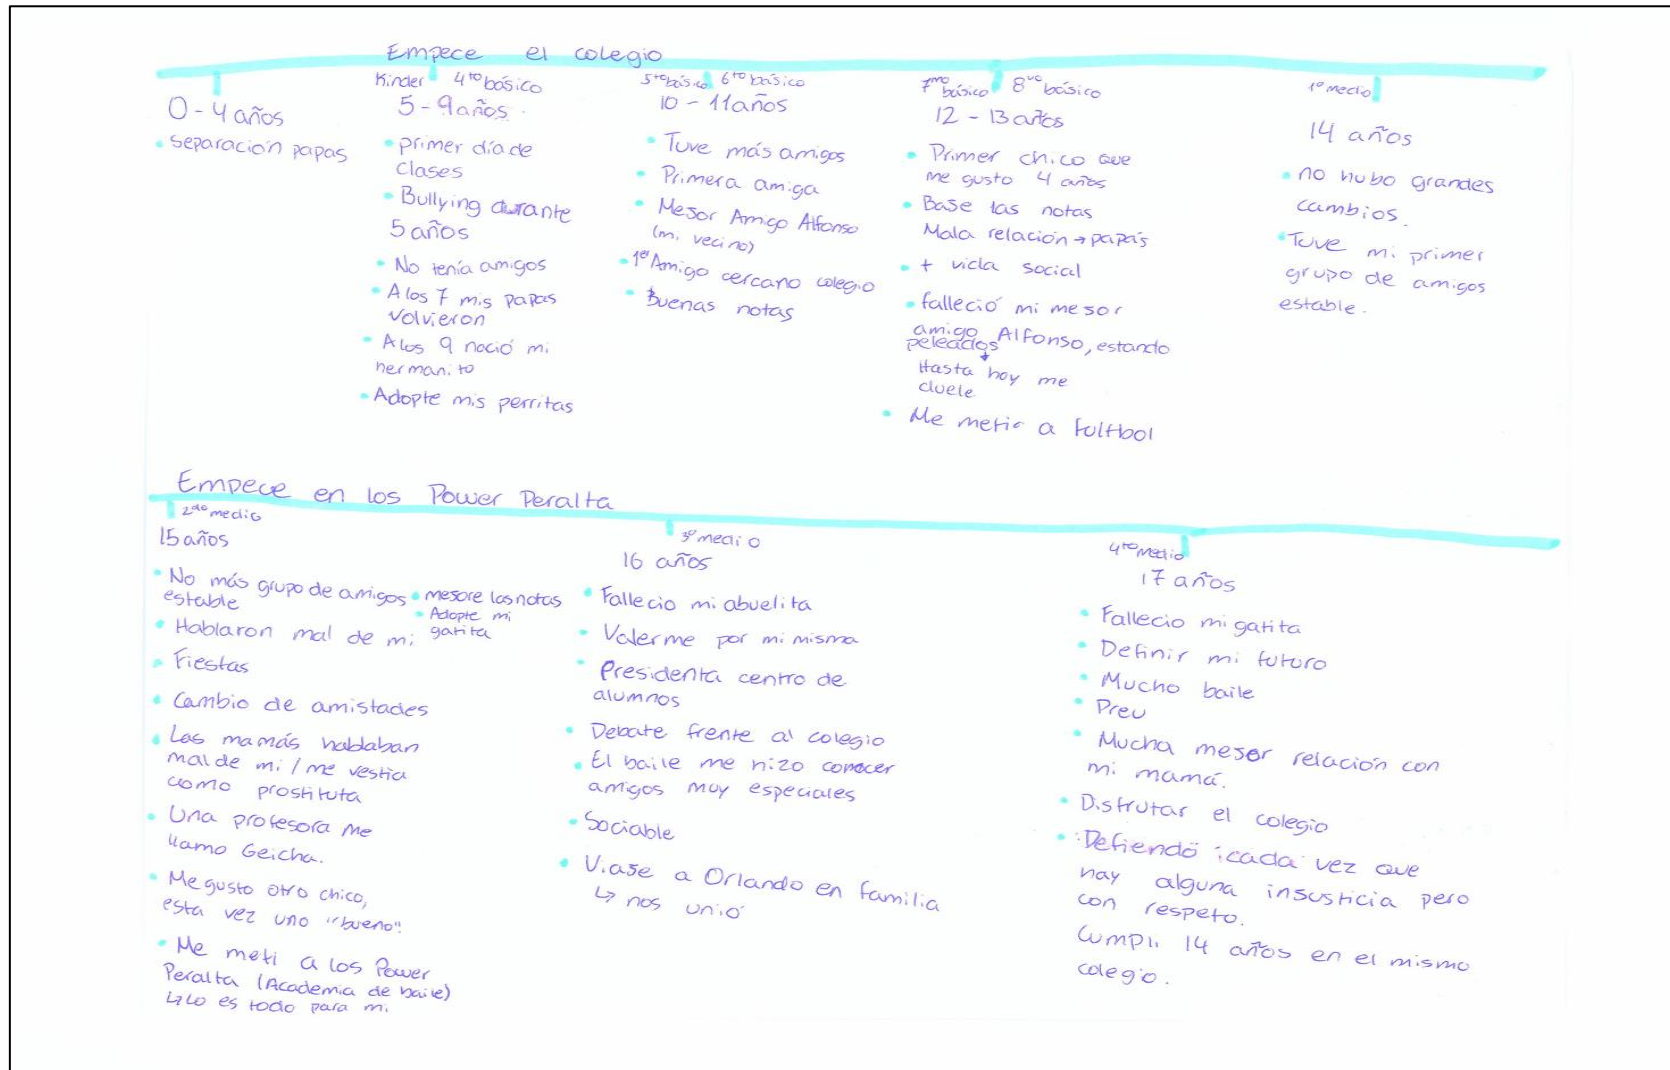 Empece el colegio
0 - 4 años
• separación papas
Kinder 4to básico
5 - 9 años
• primer día de
clases
• Bullying durante
5 años
• No tenía amigos
• A los 7 mis papas
volvieron
• A los 9 nació mi
hermanito
• Adopte mis perritas
5to básico 6to básico
10 - 11 años
• Tuve más amigos
• Primera amiga
• Mejor Amigo Alfonso
(mi vecino)
• 1er Amigo cercano colegio
• Buenas notas
7mo básico 8vo básico
12 - 13 años
• Primer chico que
me gusto 4 años
• Base las notas
Mala relación → papás
• + vida social
• falleció mi mejor
amigo Alfonso, estando
peleados
Hasta hoy me
duele
• Me metir a fultbol
1º medio
14 años
• no hubo grandes
cambios.
• Tuve mi primer
grupo de amigos
estable.
Empece en los Power Peralta
2do medio
15 años
• No más grupo de amigos
estable
• Hablaron mal de mi
• Fiestas
• Cambio de amistades
• Las mamás hablaban
mal de mi / me vestia
como prostituta
• Una profesora me
llamo Geicha.
• Me gusto otro chico,
esta vez uno "bueno".
• Me meti a los Power
Peralta (Academia de baile)
↳ Lo es todo para mi
• mejore las notas
• Adopte mi
gatita
3º medio
16 años
• Fallecio mi abuelita
• Valerme por mi misma
• Presidenta centro de
alumnos
• Debate frente al colegio
• El baile me hizo conocer
amigos muy especiales
• Sociable
• Viaje a Orlando en familia
↳ nos unió
4to medio
17 años
• Fallecio mi gatita
• Definir mi futuro
• Mucho baile
• Preu
• Mucha mejor relación con
mi mamá.
• Disfrutar el colegio
• Defiendo cada vez que
hay alguna injusticia pero
con respeto.
Cumpli 14 años en el mismo
colegio.